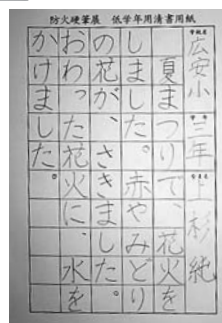 防火硬筆展 低学年用清書用紙
学校名 広安小
学年 三年
なまえ 上杉 純
夏まつりで、花火を
しました。赤やみどり
の花が、さきました。
おわった花火に、水を
かけました。